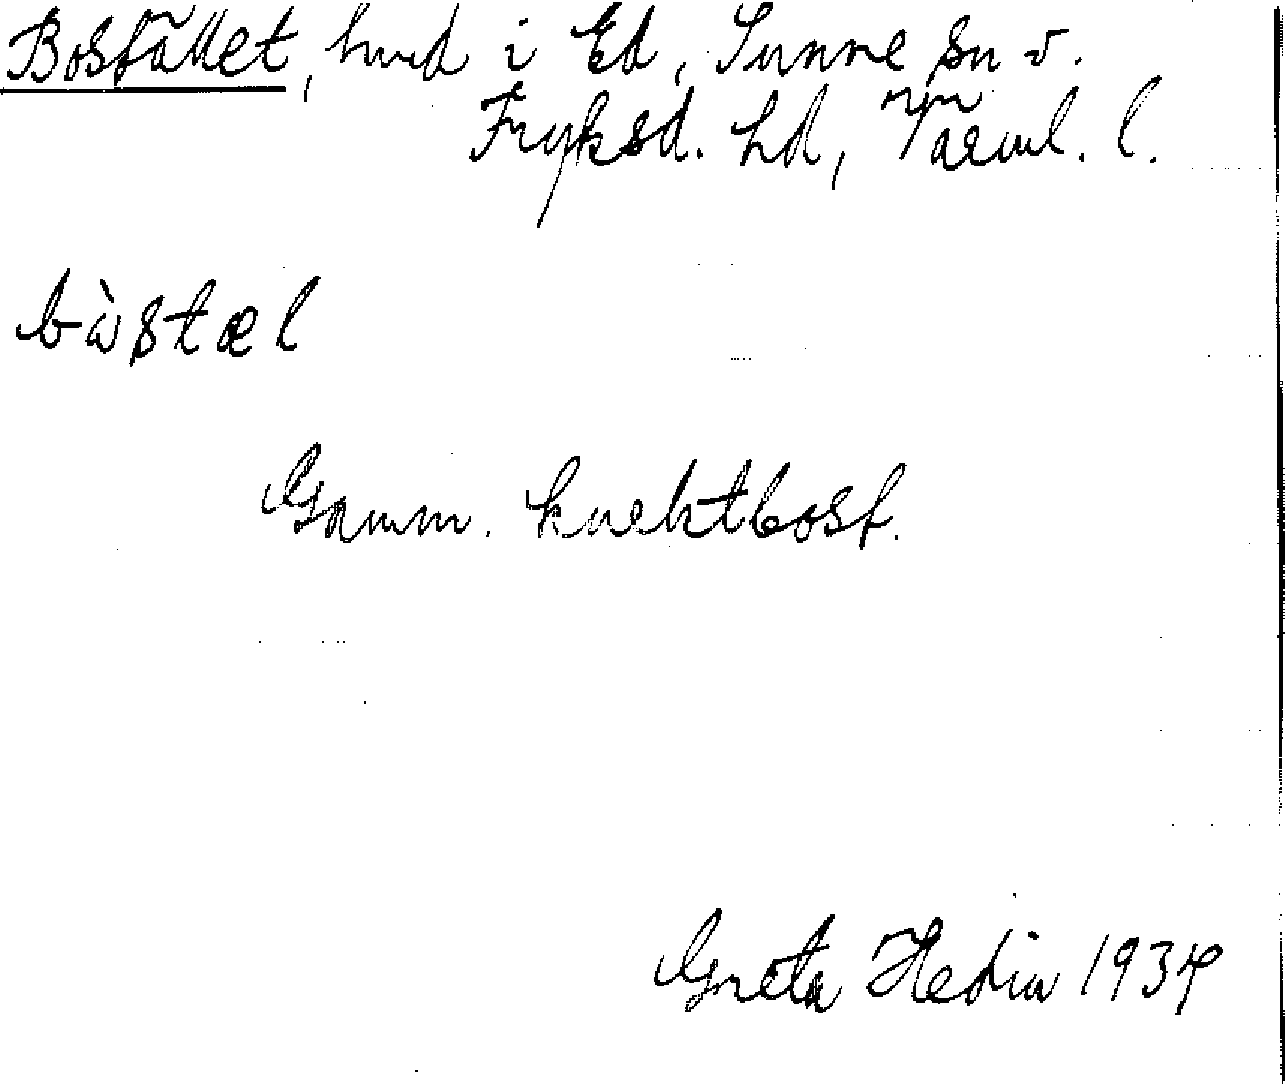 Bostället, hmd i Ed, Sunne sn v.
Fryksd. hd, Värml. l.
bòstæl
Gamm. knektbost.
Greta Hedin 1934